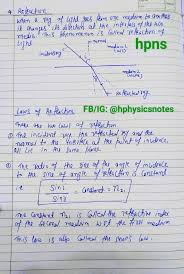 Refraction
when a ray of light goes from one medium to another
it changes its direction at the interface of the two
media. This phenomenon is called refraction of
light.
hpns
medium 1
medium 2
Refracted ray
FB/IG: @hphysicsnotes
Laws of Refraction
There are two laws of refraction
① The incident ray, the refracted ray and the
normal to the interface at the point of incidence,
all lie in the same plane.
② The ratio of the sine of the angle of incidence
to the sine of angle of refraction is constant
Sin i / Sin r = Constant = n₂₁
The constant n₂₁ is called the refractive index
of the second medium w.r.t the first medium
This law is also called the Snell's law.